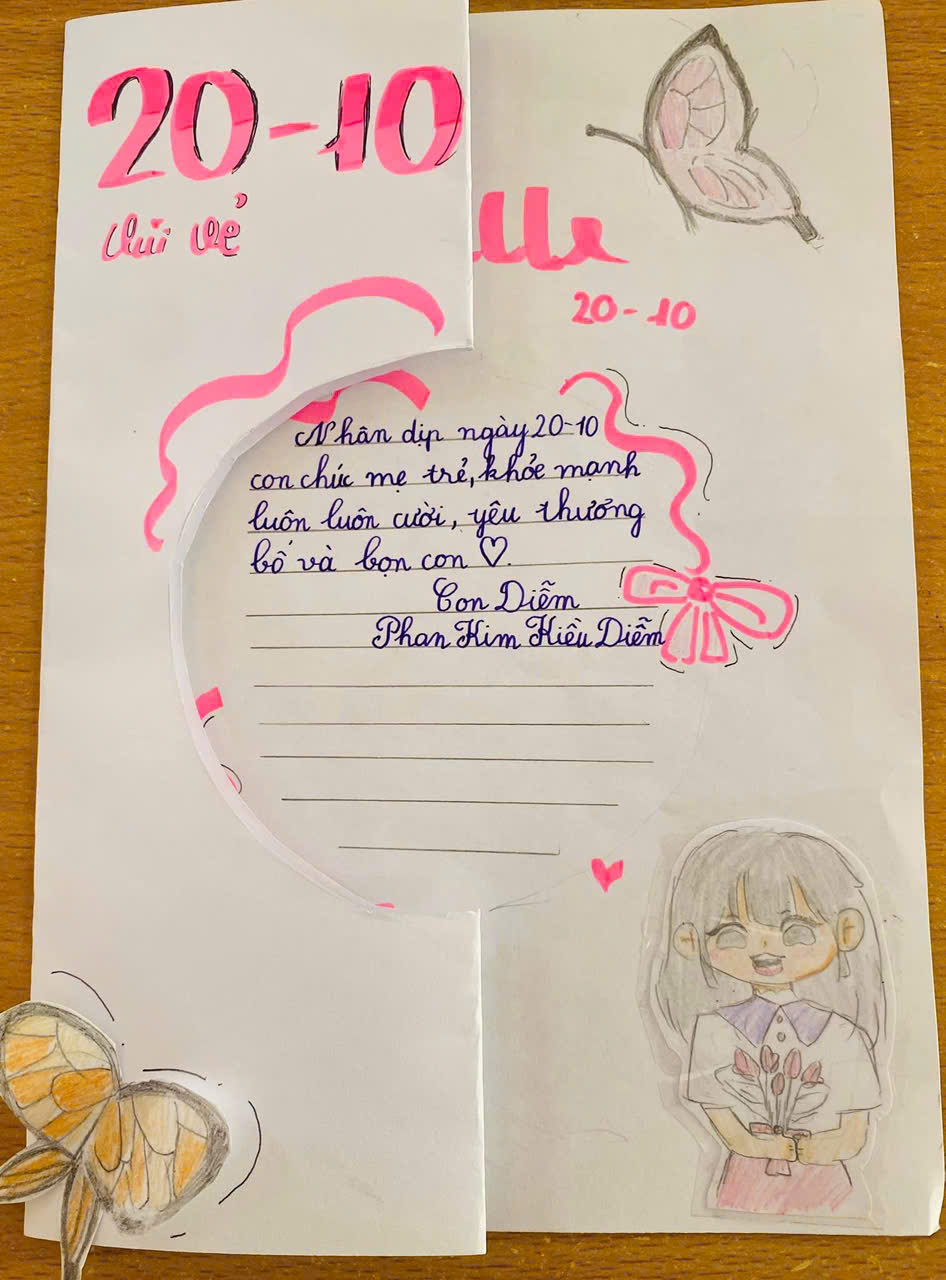 20-10
vui vẻ
20-10
Nhân dịp ngày 20-10
con chúc mẹ trẻ, khỏe mạnh
luôn luôn cười, yêu thương
bố và bọn con ♡.
Con Diễm
Phan Kim Kiều Diễm